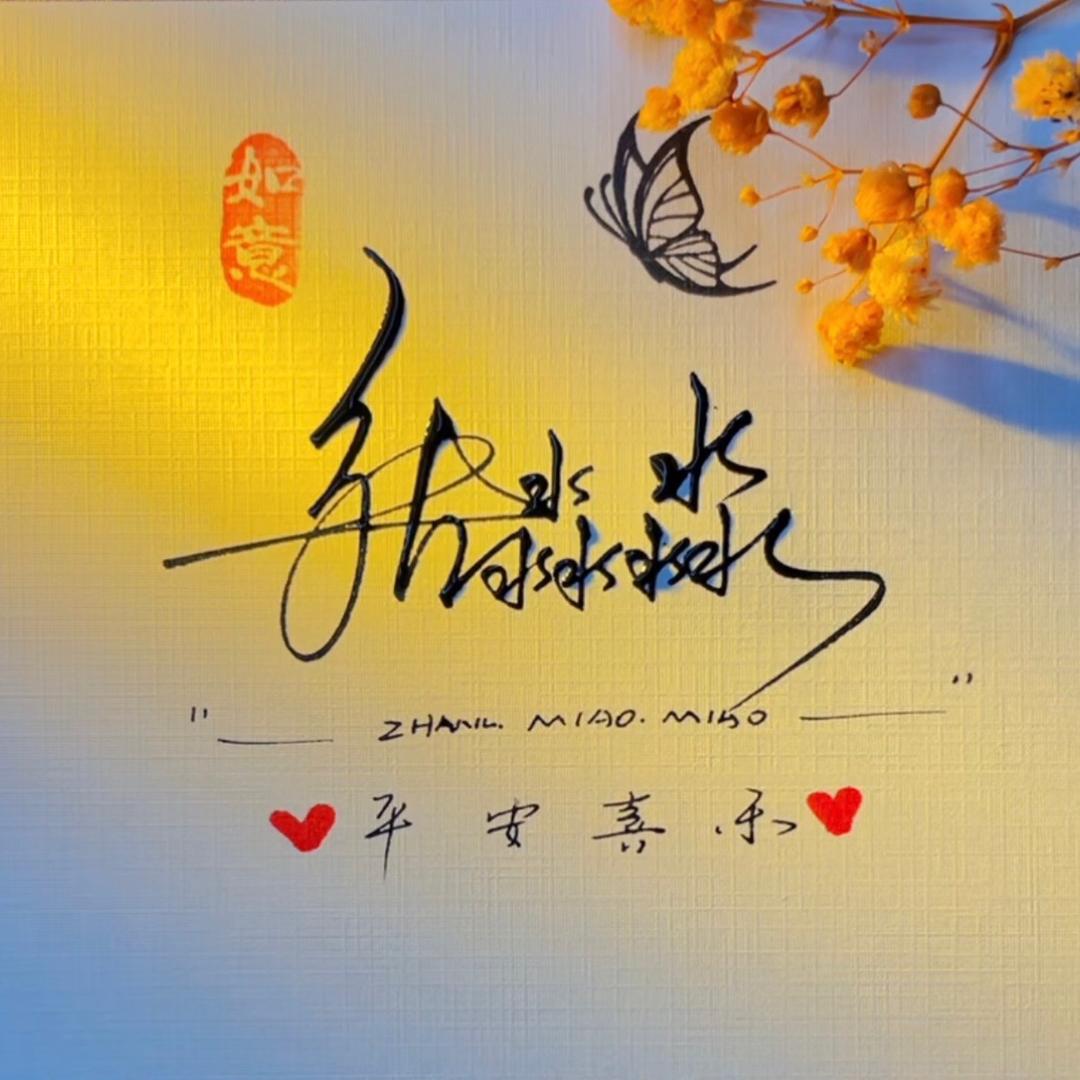 如意
张淼淼
"ZHANG. MIAO. MIAO"
平安喜乐